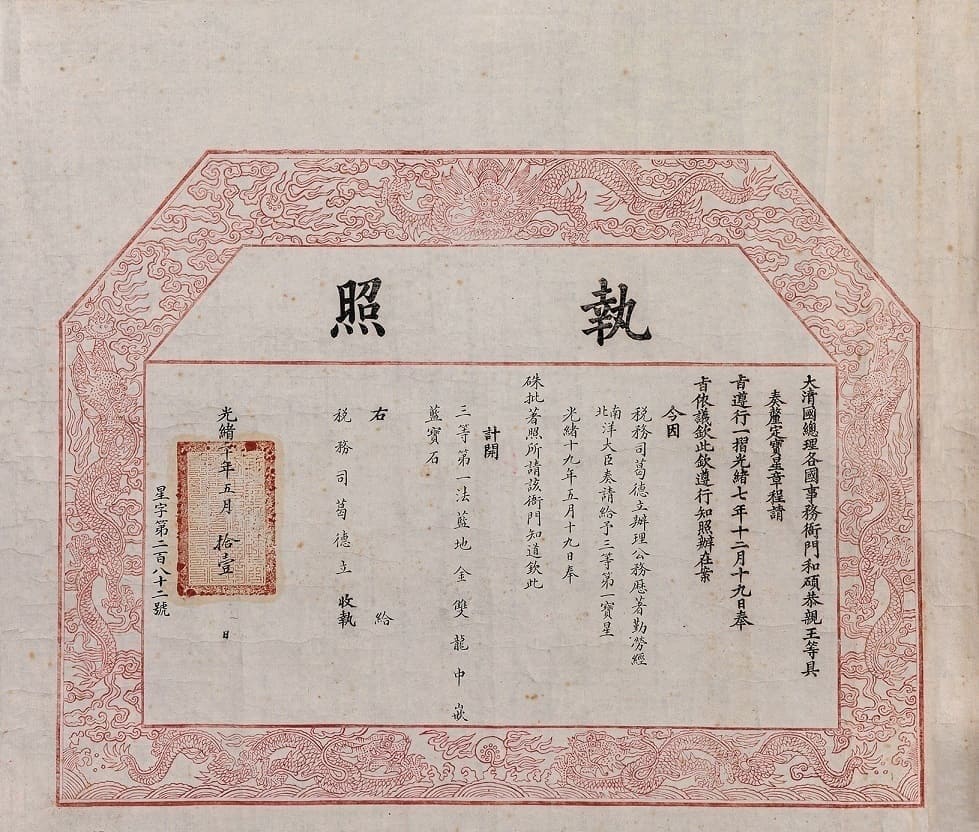 執照
大清國總理各國事務衙門和碩恭親王等具
奏釐定寶星章程請
旨遵行一摺光緒七年十二月十九日奉
旨依議欽此欽遵行知照辦在案
今因
稅務司葛德立辦理公務歷著勤勞經
南北洋大臣奏請給予三等第一寶星
光緒十九年五月十九日奉
硃批著照所請該衙門知道欽此
計開
三等第一法藍地金雙龍中嵌
藍寶石
右給
稅務司葛德立收執
光緒十年五月拾壹日
星字第二百八十二號